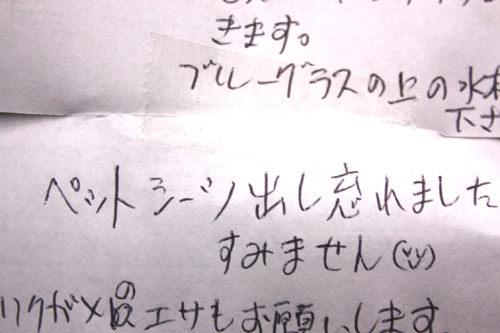 きます。
ブルーグラスの上の水
下さ
ペットシーツ出し忘れました
すみません(¨)
リクガメのエサもお願いします。